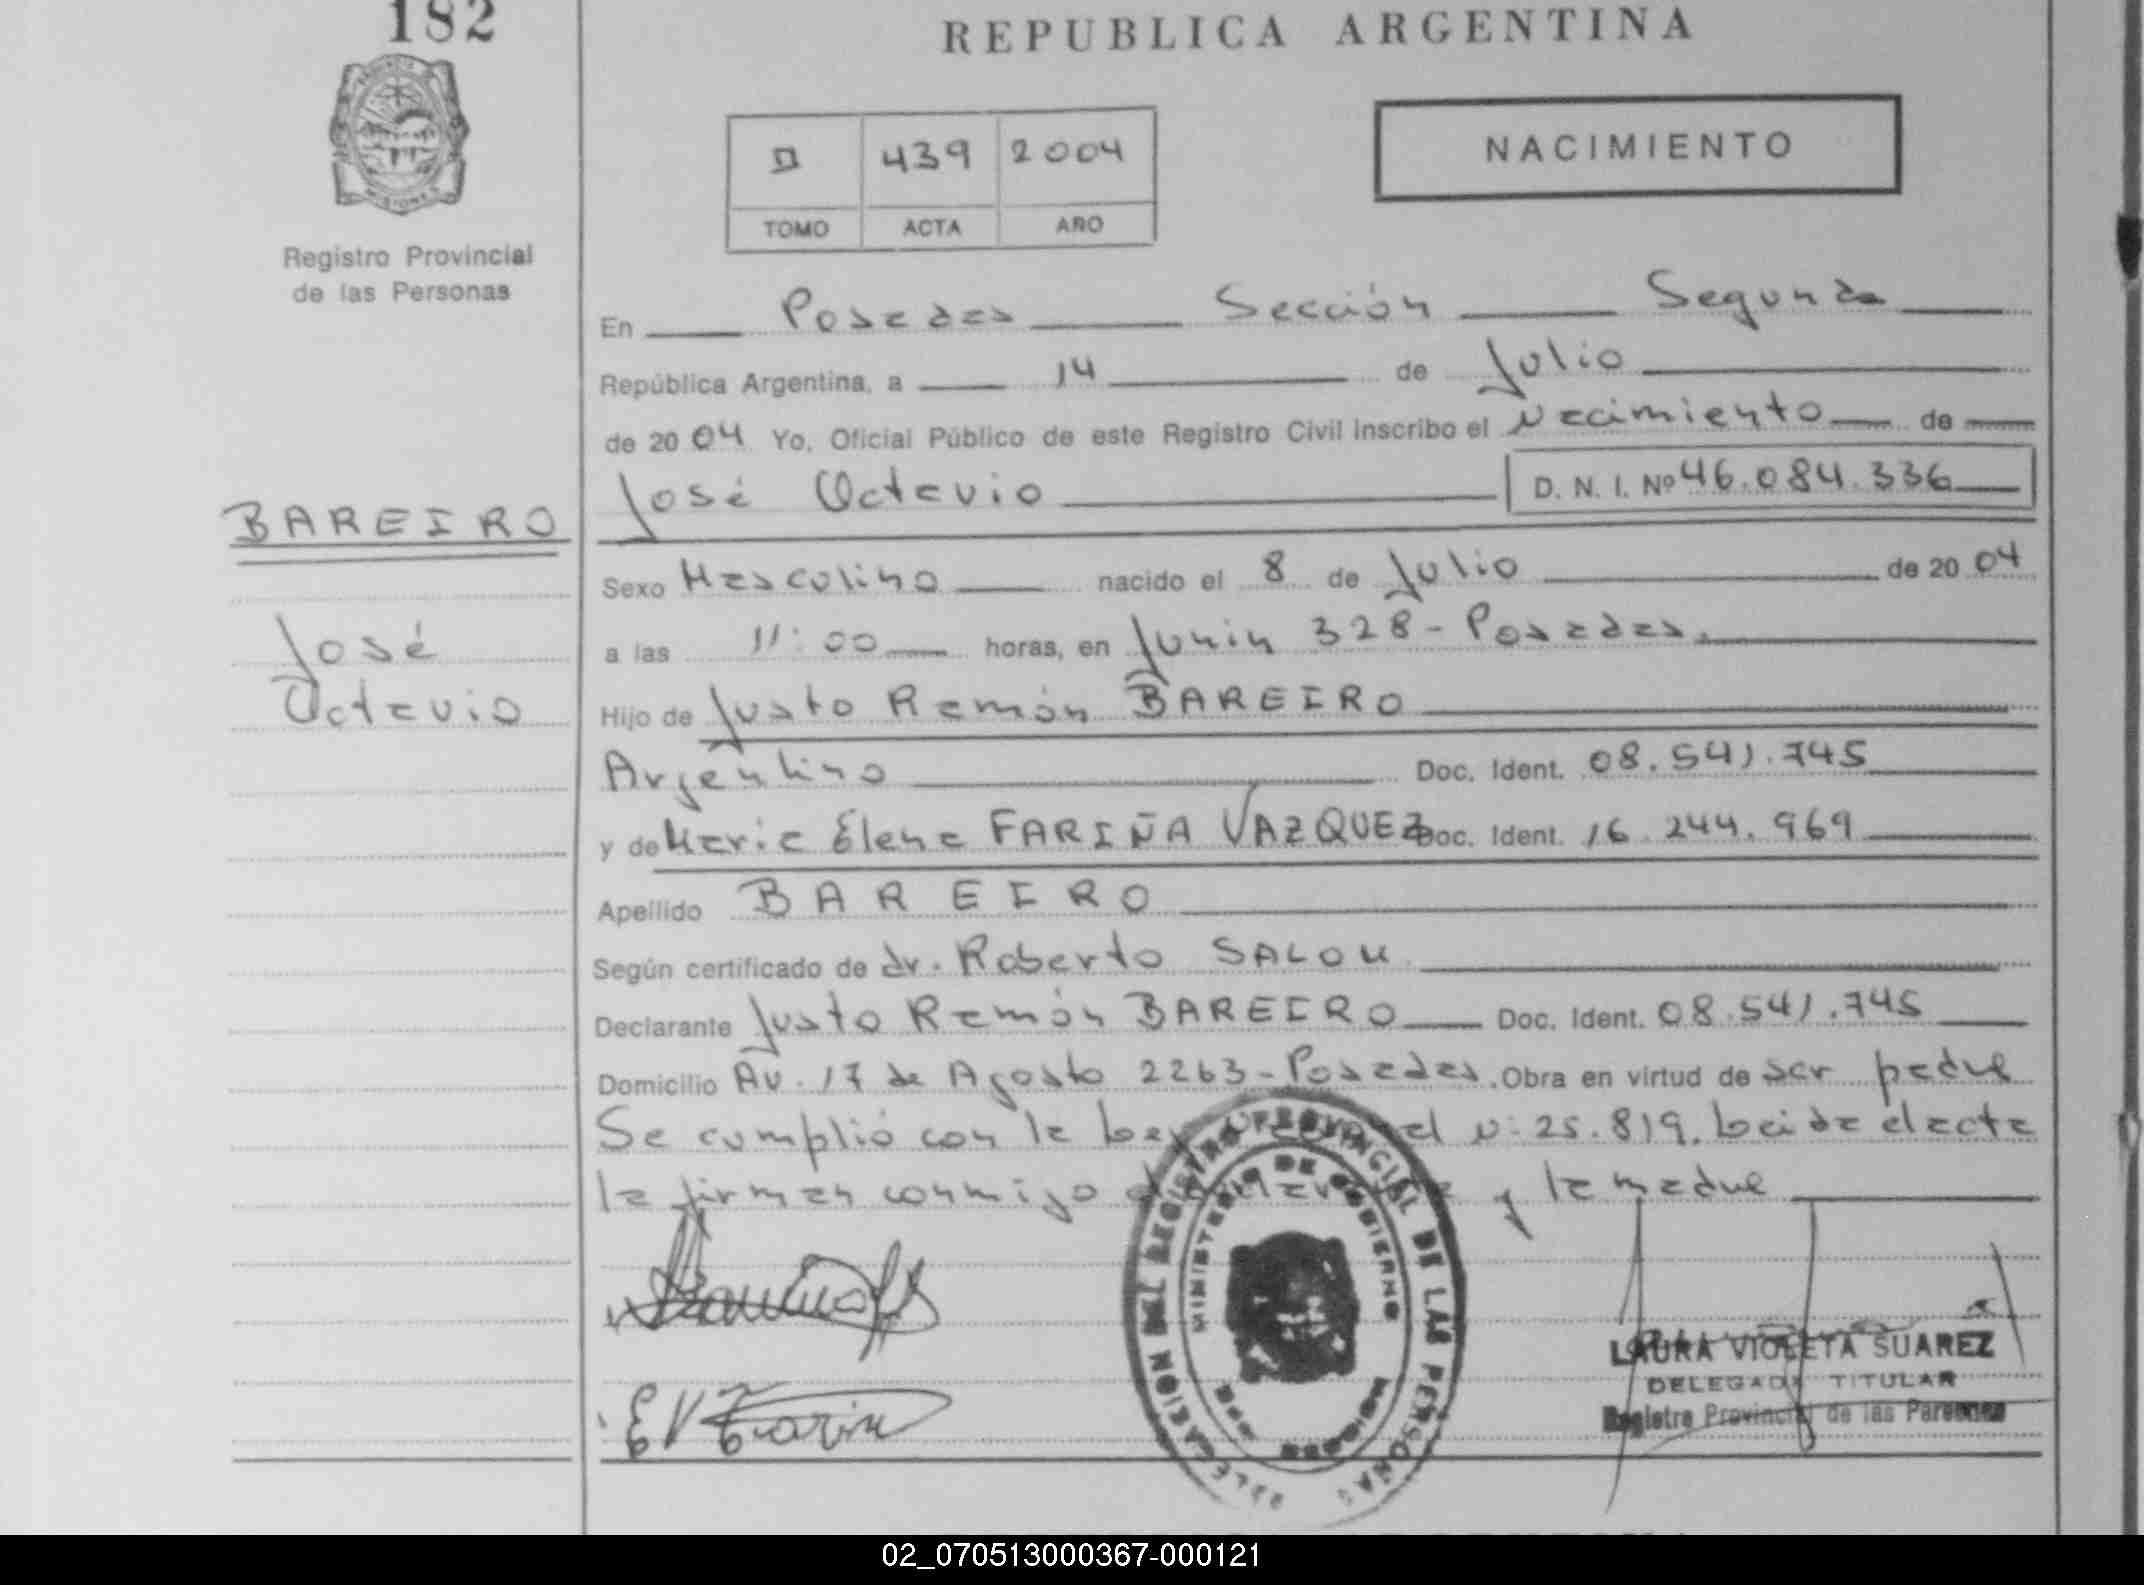 182
REPUBLICA ARGENTINA
NACIMIENTO
II 439 2004
TOMO ACTA AÑO
Registro Provincial
de las Personas
En Posadas Sección Segunda
República Argentina, a 14 de Julio
de 2004 Yo, Oficial Público de este Registro Civil inscribo el Nacimiento de
José Octavio D. N. I. Nº 46.084.336
BAREIRO
José
Octavio
Sexo Masculino nacido el 8 de Julio de 2004
a las 11:00 horas, en Junín 328 - Posadas.
Hijo de Justo Ramón BAREIRO
Argentino Doc. Ident. 08.541.745
y de María Elena FARIÑA VAZQUEZ Doc. Ident. 16.244.969
Apellido BAREIRO
Según certificado de dr. Roberto SALOM
Declarante Justo Ramón BAREIRO Doc. Ident. 08.541.745
Domicilio Av. 17 de Agosto 2263 - Posadas. Obra en virtud de ser padre
Se cumplió con la Ley Nacional Nº 25.819. Leída el acta
la firman conmigo el y la madre
DELEGACION DEL REGISTRO PROVINCIAL DE LAS PERSONAS
MINISTERIO DE GOBIERNO
MISIONES
LAURA VIOLETA SUAREZ
DELEGADA TITULAR
Registro Provincial de las Personas
02_070513000367-000121